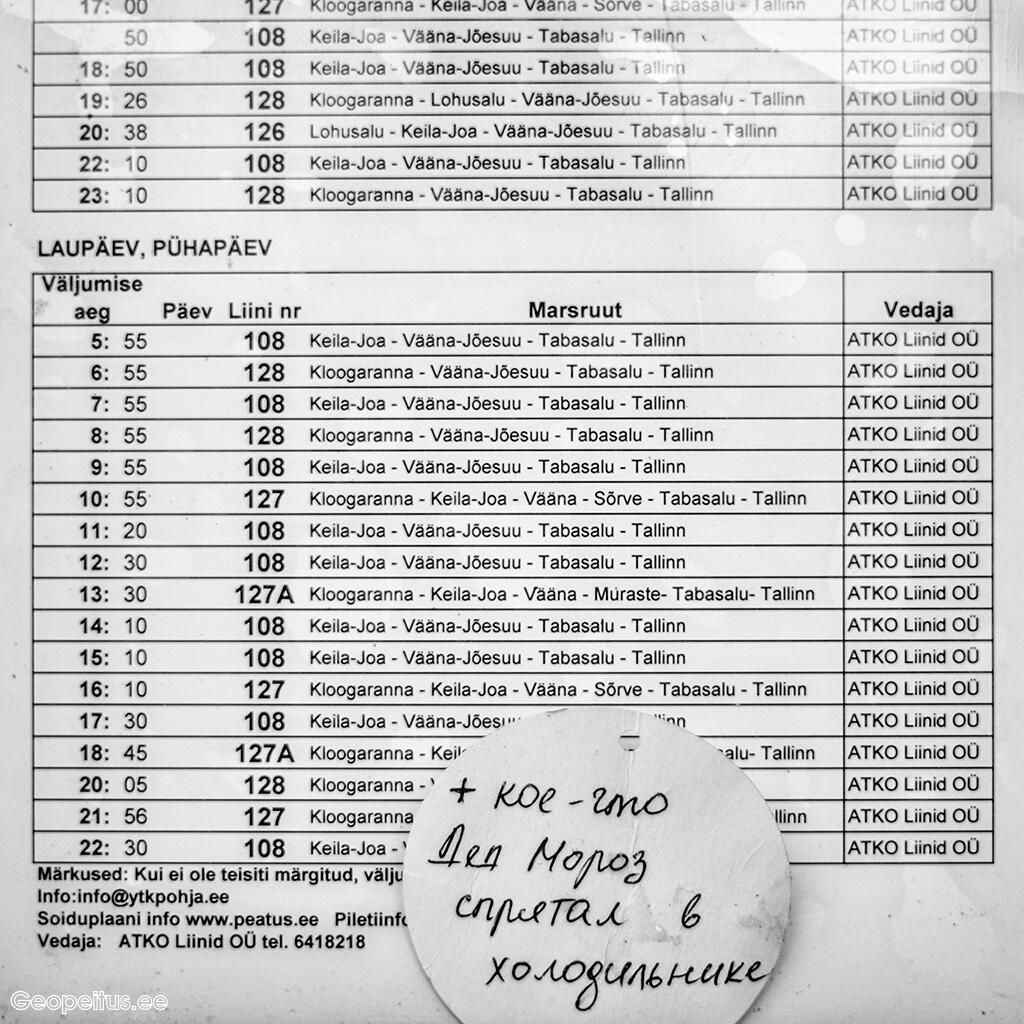 17: 00 127 Kloogaranna - Keila-Joa - Vääna - Sõrve - Tabasalu - Tallinn ATKO Liinid OÜ
50 108 Keila-Joa - Vääna-Jõesuu - Tabasalu - Tallinn ATKO Liinid OÜ
18: 50 108 Keila-Joa - Vääna-Jõesuu - Tabasalu - Tallinn ATKO Liinid OÜ
19: 26 128 Kloogaranna - Lohusalu - Vääna-Jõesuu - Tabasalu - Tallinn ATKO Liinid OÜ
20: 38 126 Lohusalu - Keila-Joa - Vääna-Jõesuu - Tabasalu - Tallinn ATKO Liinid OÜ
22: 10 108 Keila-Joa - Vääna-Jõesuu - Tabasalu - Tallinn ATKO Liinid OÜ
23: 10 128 Kloogaranna - Vääna-Jõesuu - Tabasalu - Tallinn ATKO Liinid OÜ
LAUPÄEV, PÜHAPÄEV
Väljumise
aeg Päev Liini nr Marsruut Vedaja
5: 55 108 Keila-Joa - Vääna-Jõesuu - Tabasalu - Tallinn ATKO Liinid OÜ
6: 55 128 Kloogaranna - Vääna-Jõesuu - Tabasalu - Tallinn ATKO Liinid OÜ
7: 55 108 Keila-Joa - Vääna-Jõesuu - Tabasalu - Tallinn ATKO Liinid OÜ
8: 55 128 Kloogaranna - Vääna-Jõesuu - Tabasalu - Tallinn ATKO Liinid OÜ
9: 55 108 Keila-Joa - Vääna-Jõesuu - Tabasalu - Tallinn ATKO Liinid OÜ
10: 55 127 Kloogaranna - Keila-Joa - Vääna - Sõrve - Tabasalu - Tallinn ATKO Liinid OÜ
11: 20 108 Keila-Joa - Vääna-Jõesuu - Tabasalu - Tallinn ATKO Liinid OÜ
12: 30 108 Keila-Joa - Vääna-Jõesuu - Tabasalu - Tallinn ATKO Liinid OÜ
13: 30 127A Kloogaranna - Keila-Joa - Vääna - Muraste- Tabasalu- Tallinn ATKO Liinid OÜ
14: 10 108 Keila-Joa - Vääna-Jõesuu - Tabasalu - Tallinn ATKO Liinid OÜ
15: 10 108 Keila-Joa - Vääna-Jõesuu - Tabasalu - Tallinn ATKO Liinid OÜ
16: 10 127 Kloogaranna - Keila-Joa - Vääna - Sõrve - Tabasalu - Tallinn ATKO Liinid OÜ
17: 30 108 Keila-Joa - Vääna-Jõesu llinn ATKO Liinid OÜ
18: 45 127A Kloogaranna - Keil alu- Tallinn ATKO Liinid OÜ
20: 05 128 Kloogaranna - ATKO Liinid OÜ
21: 56 127 Kloogaranna llinn ATKO Liinid OÜ
22: 30 108 Keila-Joa - ATKO Liinid OÜ
Märkused: Kui ei ole teisiti märgitud, välju
Info:info@ytkpohja.ee
Soiduplaani info www.peatus.ee Piletiinfo
Vedaja: ATKO Liinid OÜ tel. 6418218
+ кое-что
Дед Мороз
спрятал в
холодильнике
Geopeitus.ee